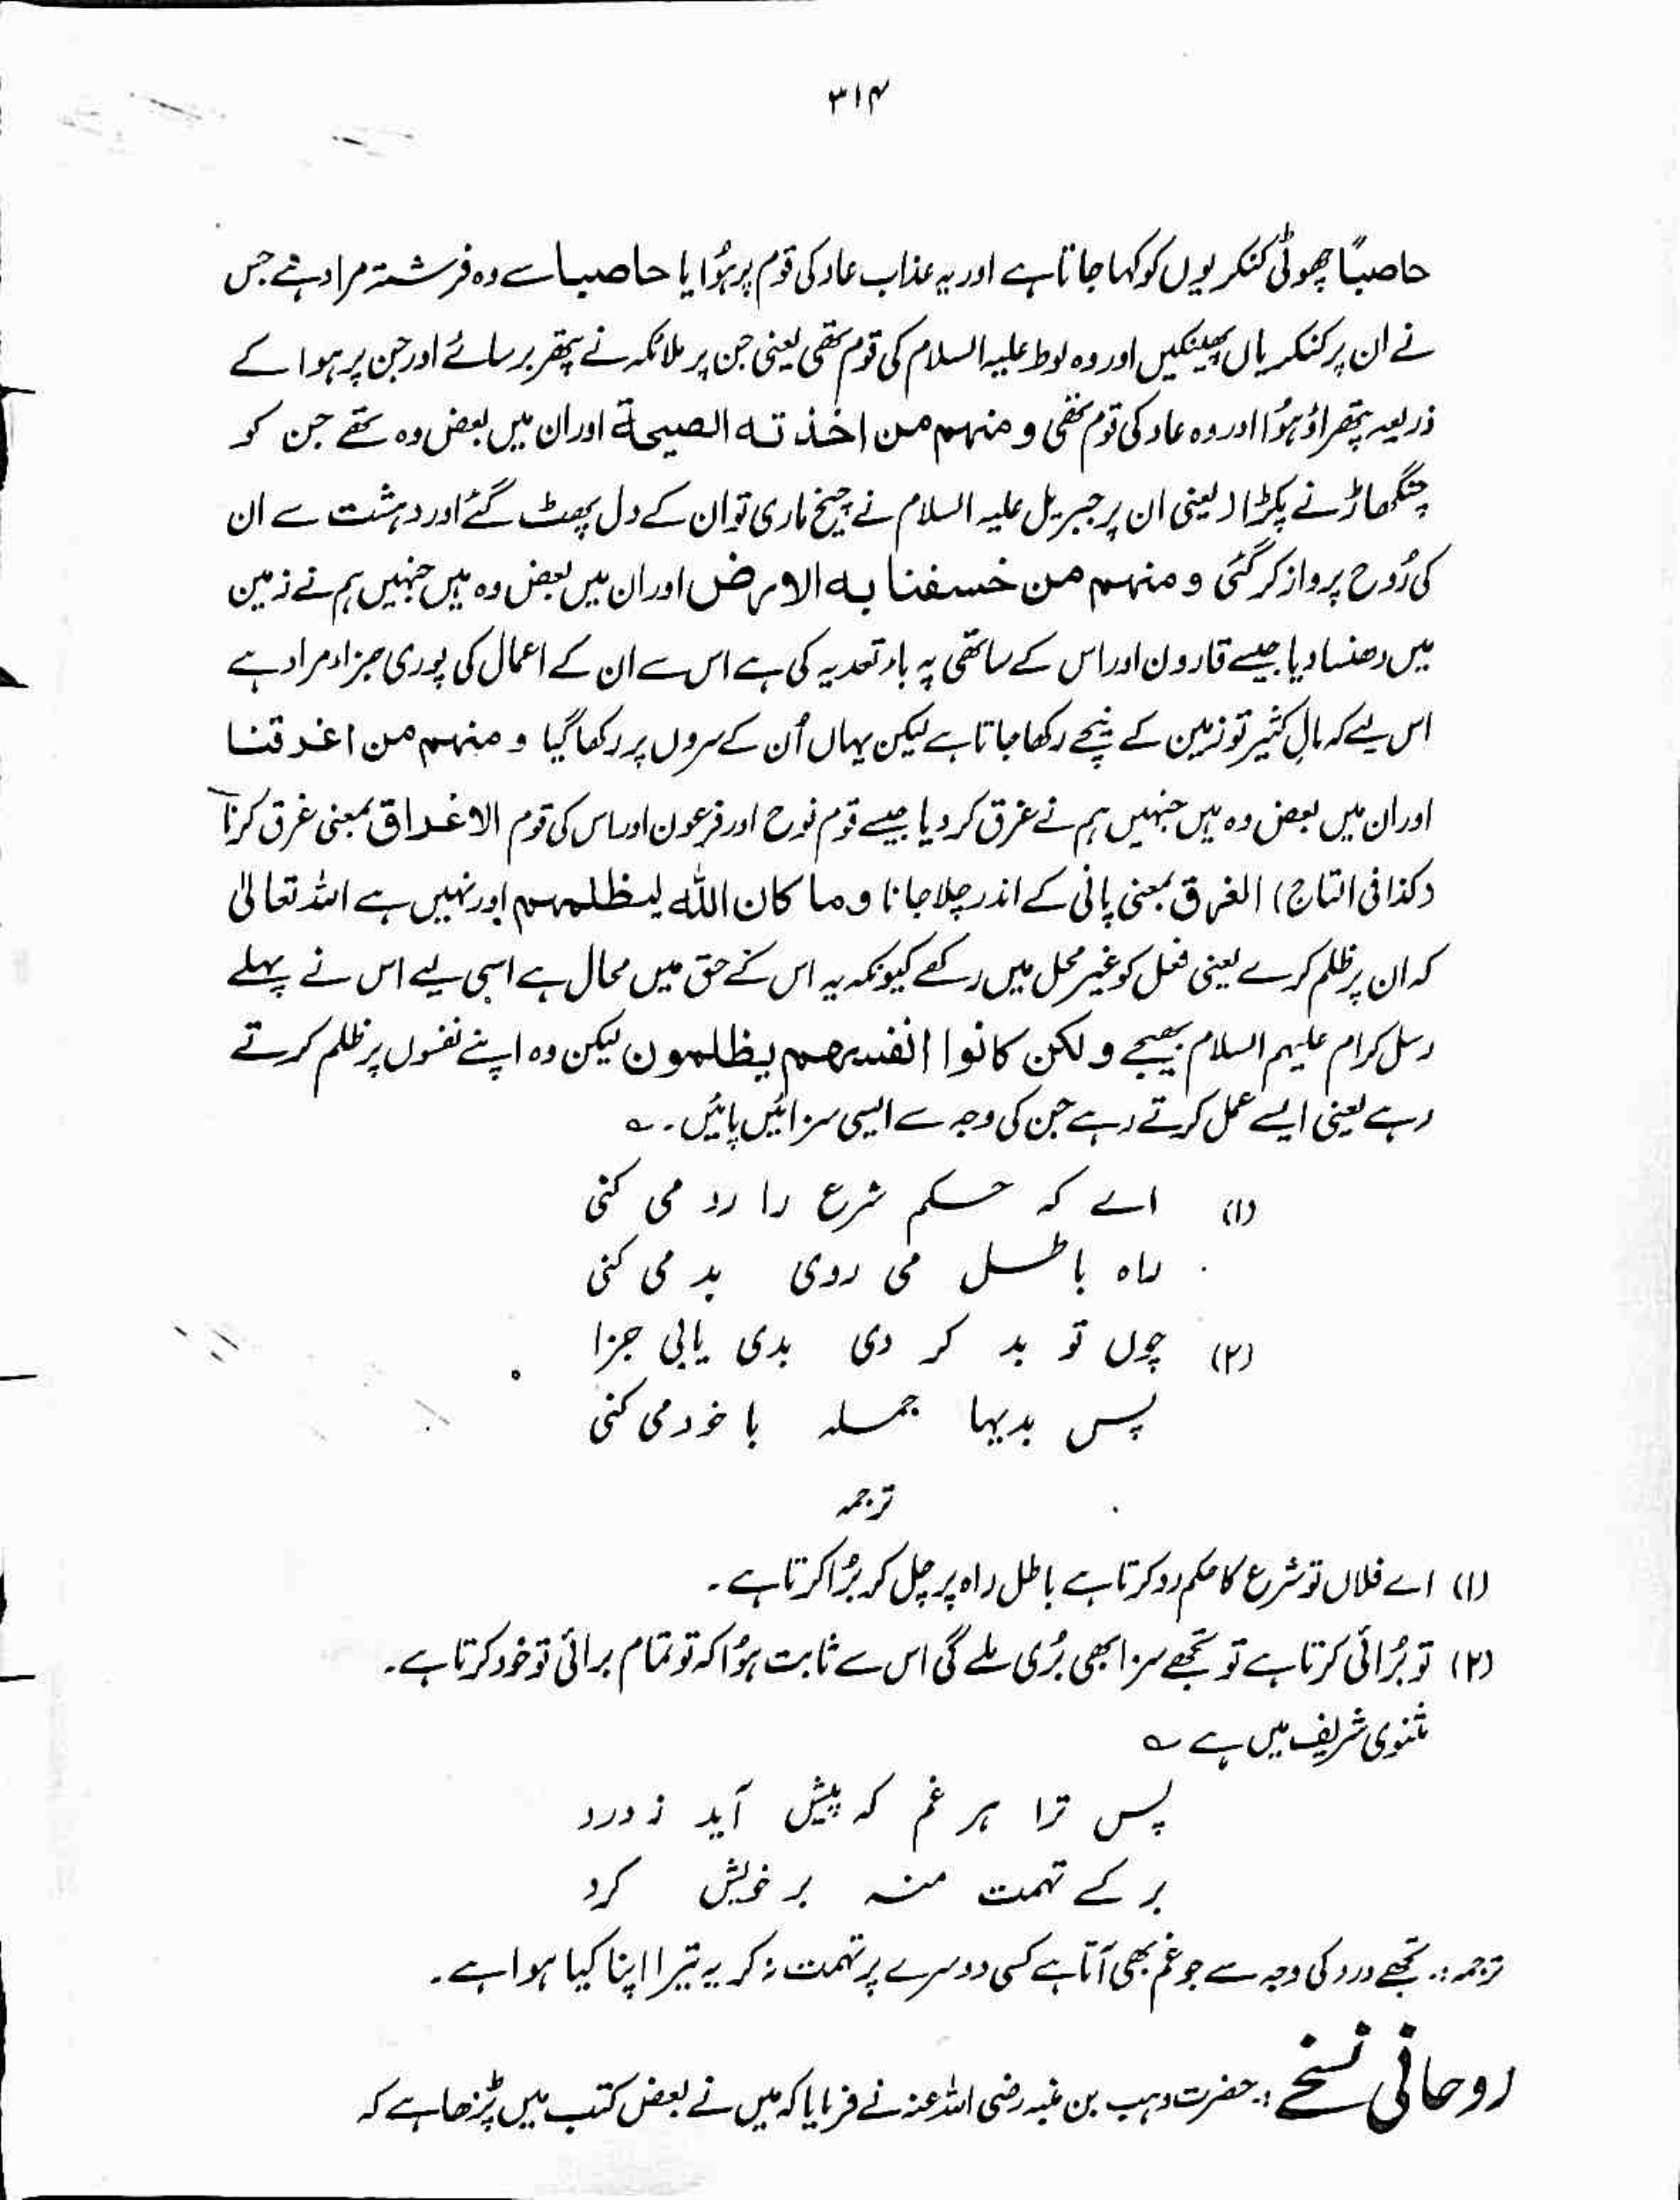 ۳۱۴
حاصبًا چھوٹی کنکریوں کو کہا جاتا ہے اور یہ عذاب عاد کی قوم پر ہُوا یا حاصبا سے وہ فرشتہ مراد ہے جس
نے ان پر کنکریاں پھینکیں اور وہ لوط علیہ السلام کی قوم تھی یعنی جن پر ملائکہ نے پتھر برسائے اور جن پر ہوا کے
ذریعہ پتھراؤ ہُوا اور وہ عاد کی قوم تھی و منہم من اخذتہ الصیحۃ اور ان میں بعض وہ تھے جن کو
چنگھاڑ نے پکڑا (یعنی ان پر جبریل علیہ السلام نے چیخ ماری تو ان کے دل پھٹ گئے اور دہشت سے ان
کی رُوح پرواز کر گئی و منہم من خسفنا بہ الارض اور ان میں بعض وہ ہیں جنہیں ہم نے زمین
میں دھنسا دیا جیسے قارون اور اس کے ساتھی یہ باء تعدیہ کی ہے اس سے ان کے اعمال کی پوری جزاء مراد ہے
اس لیے کہ مالِ کثیر تو زمین کے نیچے رکھا جاتا ہے لیکن یہاں اُن کے سروں پر رکھا گیا و منہم من اغرقنا
اور ان میں بعض وہ ہیں جنہیں ہم نے غرق کر دیا جیسے قوم نوح اور فرعون اور اس کی قوم الاغراق بمعنی غرق کرنا
(کذا فی التاج) الغرق بمعنی پانی کے اندر چلا جانا و ما کان اللہ لیظلمہم اور نہیں ہے اللہ تعالیٰ
کہ ان پر ظلم کرے یعنی فعل کو غیر محل میں رکھے کیونکہ یہ اس کے حق میں محال ہے اسی لیے اس نے پہلے
رسل کرام علیہم السلام بھیجے و لکن کانوا انفسہم یظلمون لیکن وہ اپنے نفسوں پر ظلم کرتے
رہے یعنی ایسے عمل کرتے رہے جن کی وجہ سے ایسی سزائیں پائیں۔ ؎
(۱) اے کہ حکم شرع را رد می کنی
راہ باطل می روی بد می کنی
(۲) چوں تو بد کر دی بدی یابی جزا
پس بدیہا جملہ با خود می کنی
ترجمہ
(۱) اے فلاں تو شرع کا حکم رد کرتا ہے باطل راہ پر چل کر بُرا کرتا ہے۔
(۲) تو بُرائی کرتا ہے تو تجھے سزا بھی بُری ملے گی اس سے ثابت ہُوا کہ تو تمام برائی تو خود کرتا ہے۔
مثنوی شریف میں ہے ؎
پس ترا ہر غم کہ پیش آید ز درد
بر کے تہمت منہ بر خویش کرد
ترجمہ:۔ تجھے درد کی وجہ سے جو غم بھی آتا ہے کسی دوسرے پر تہمت نہ کر یہ تیرا اپنا کیا ہوا ہے۔
روحانی نسخے :۔ حضرت وہب بن منبہ رضی اللہ عنہ نے فرمایا کہ میں نے بعض کتب میں پڑھا ہے کہ